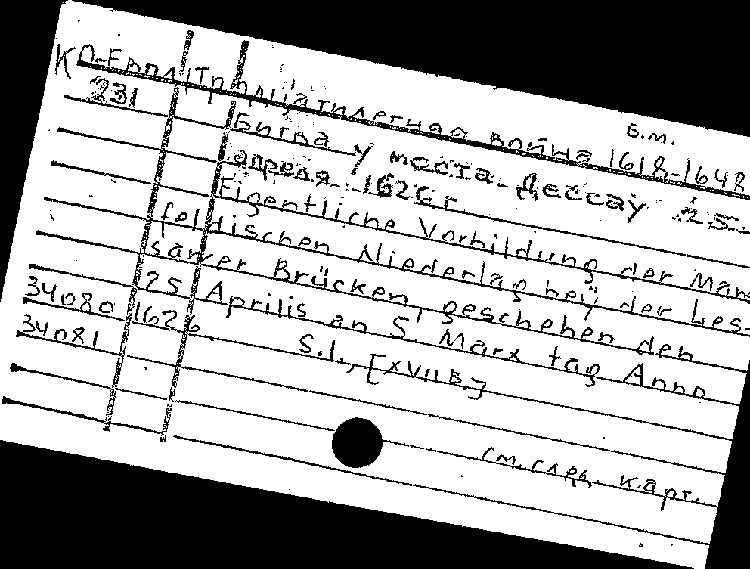 К П-Европ. Тридцатилетняя война 1618-1648 Б.м.
231 Битва у моста Дессау 25
апреля 1626 г
Eigentliche Vorbildung der Mans
feldischen Niederlag beÿ der Des-
sawer Brücken, geschehen den
34080 25 Aprilis an S. Marx tag Anno
34081 1626. S.l., [XVII в.]
см. след. карт.